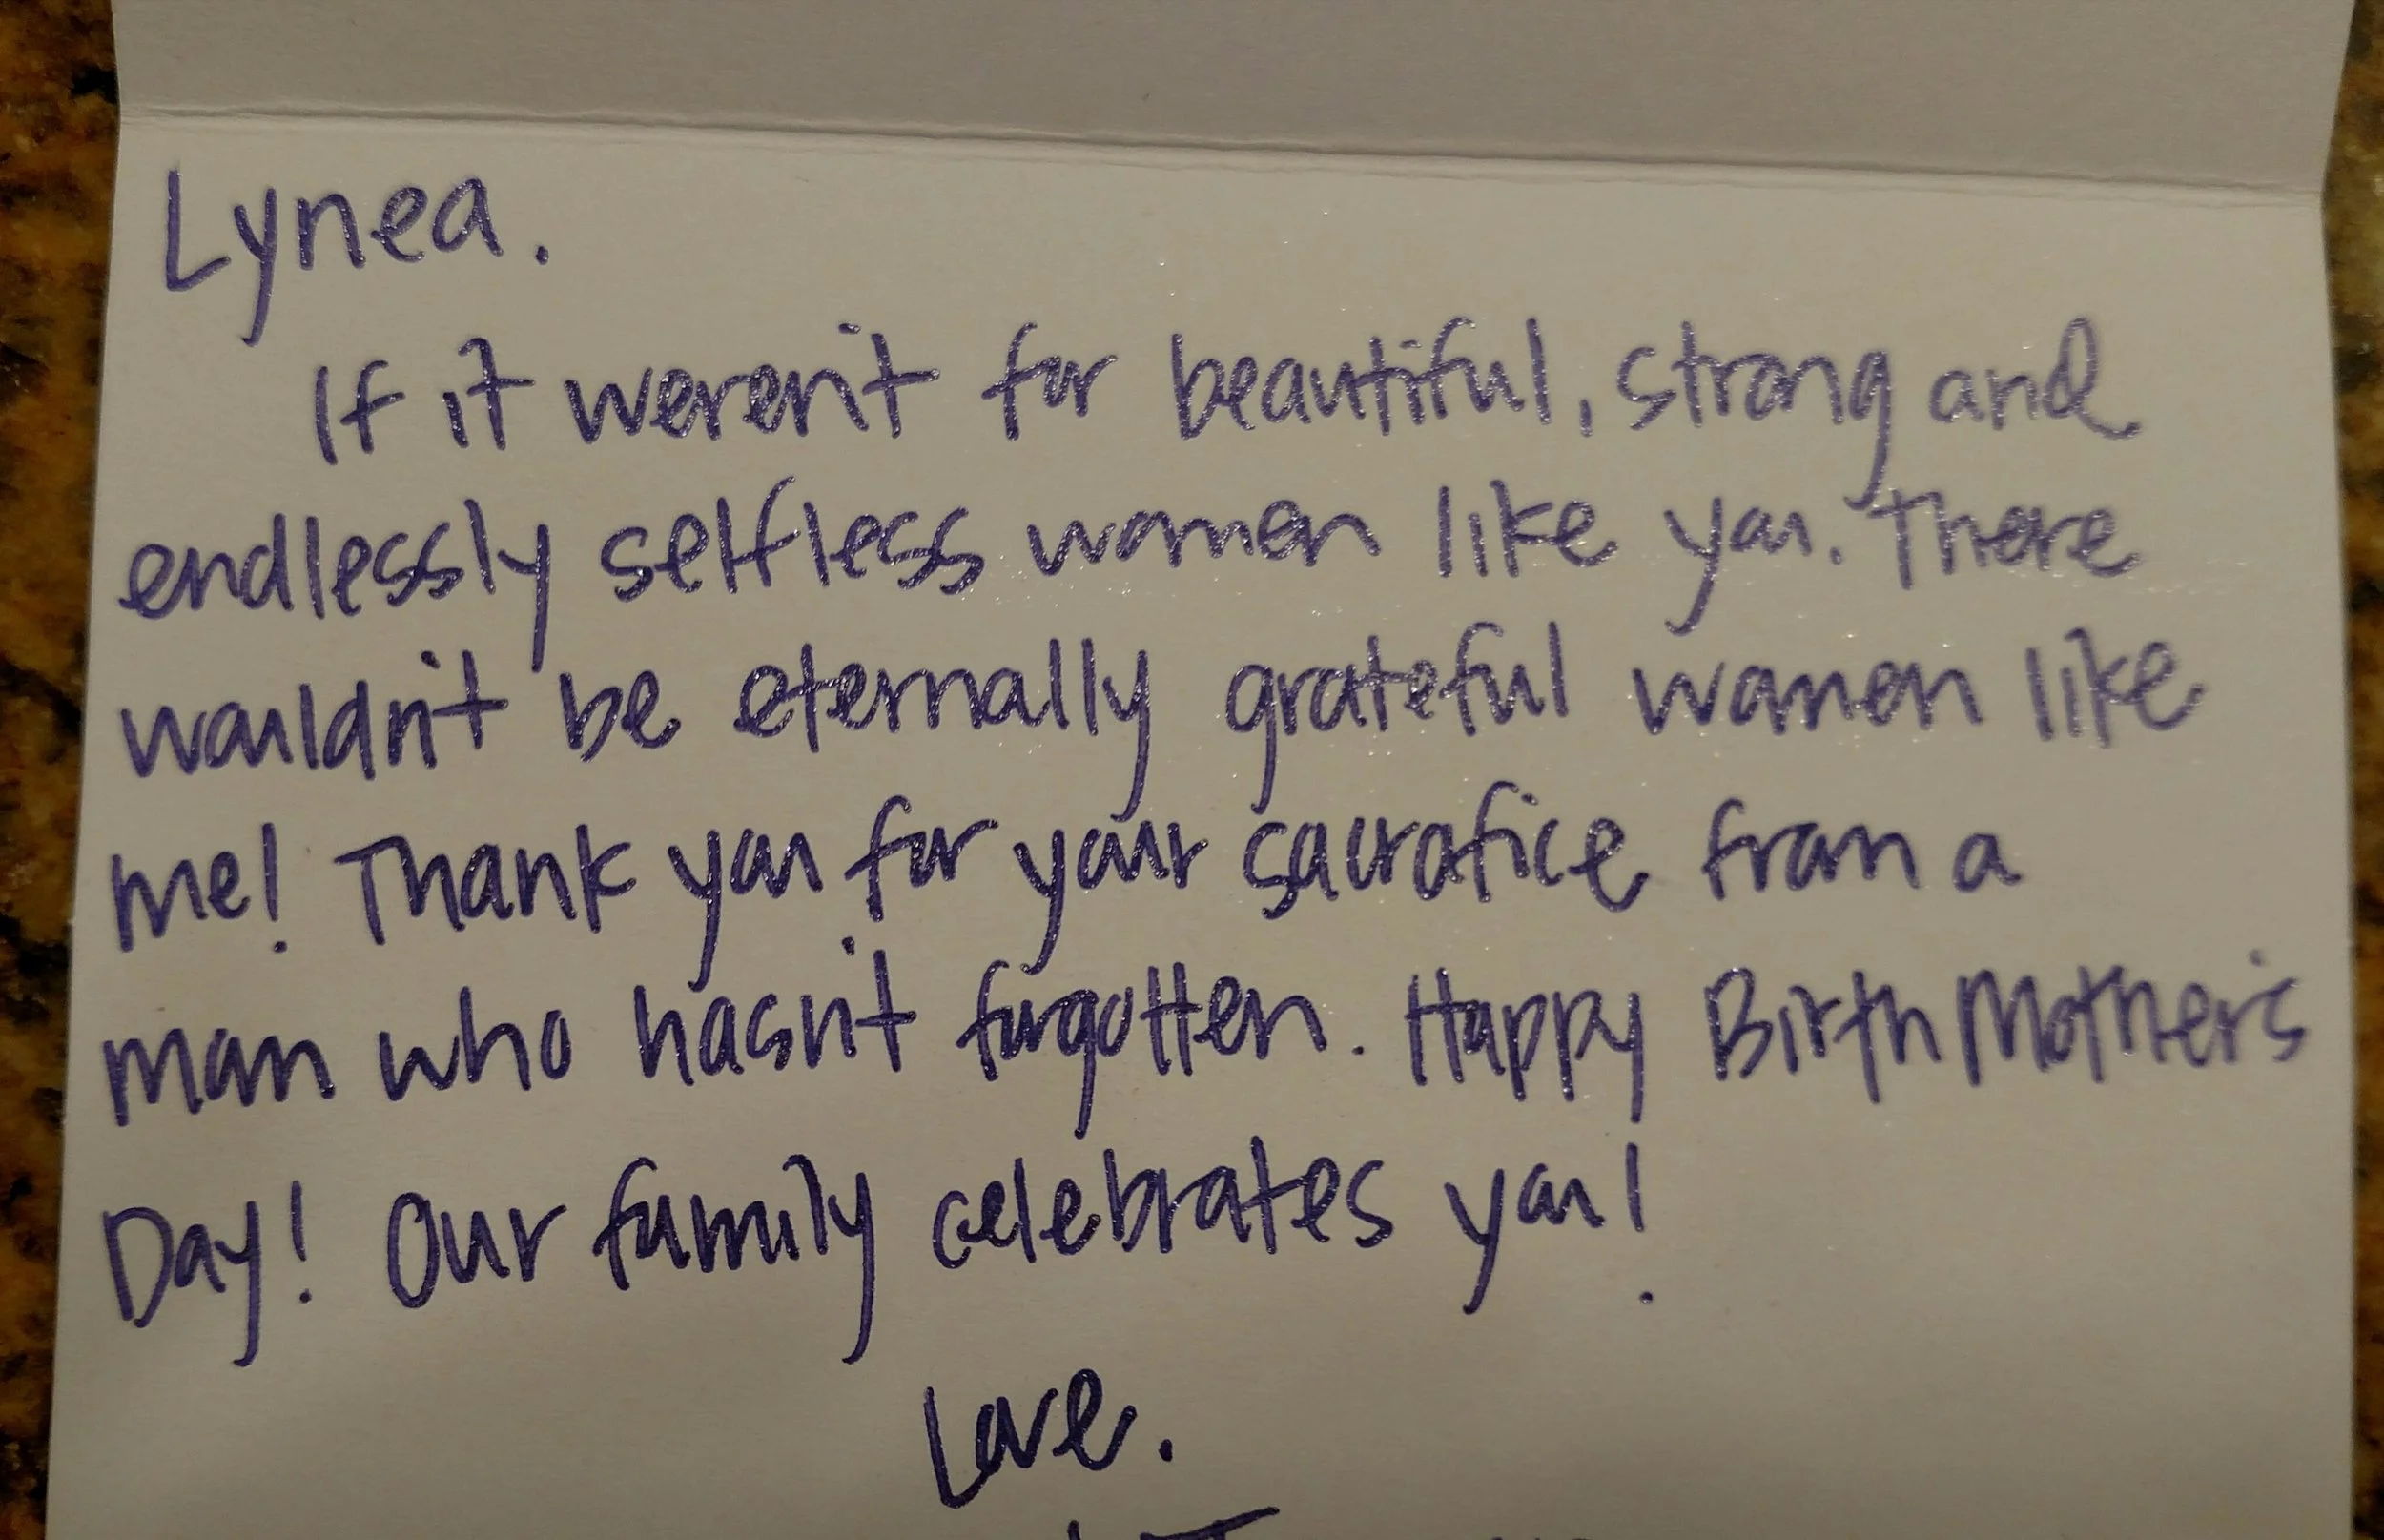 Lynea.
If it weren't for beautiful, strong and
endlessly selfless women like you. There
wouldn't be eternally grateful women like
me! Thank you for your sacrafice from a
mam who hasn't forgotten. Happy Birth Mother's
Day! Our family celebrates you!
Love.